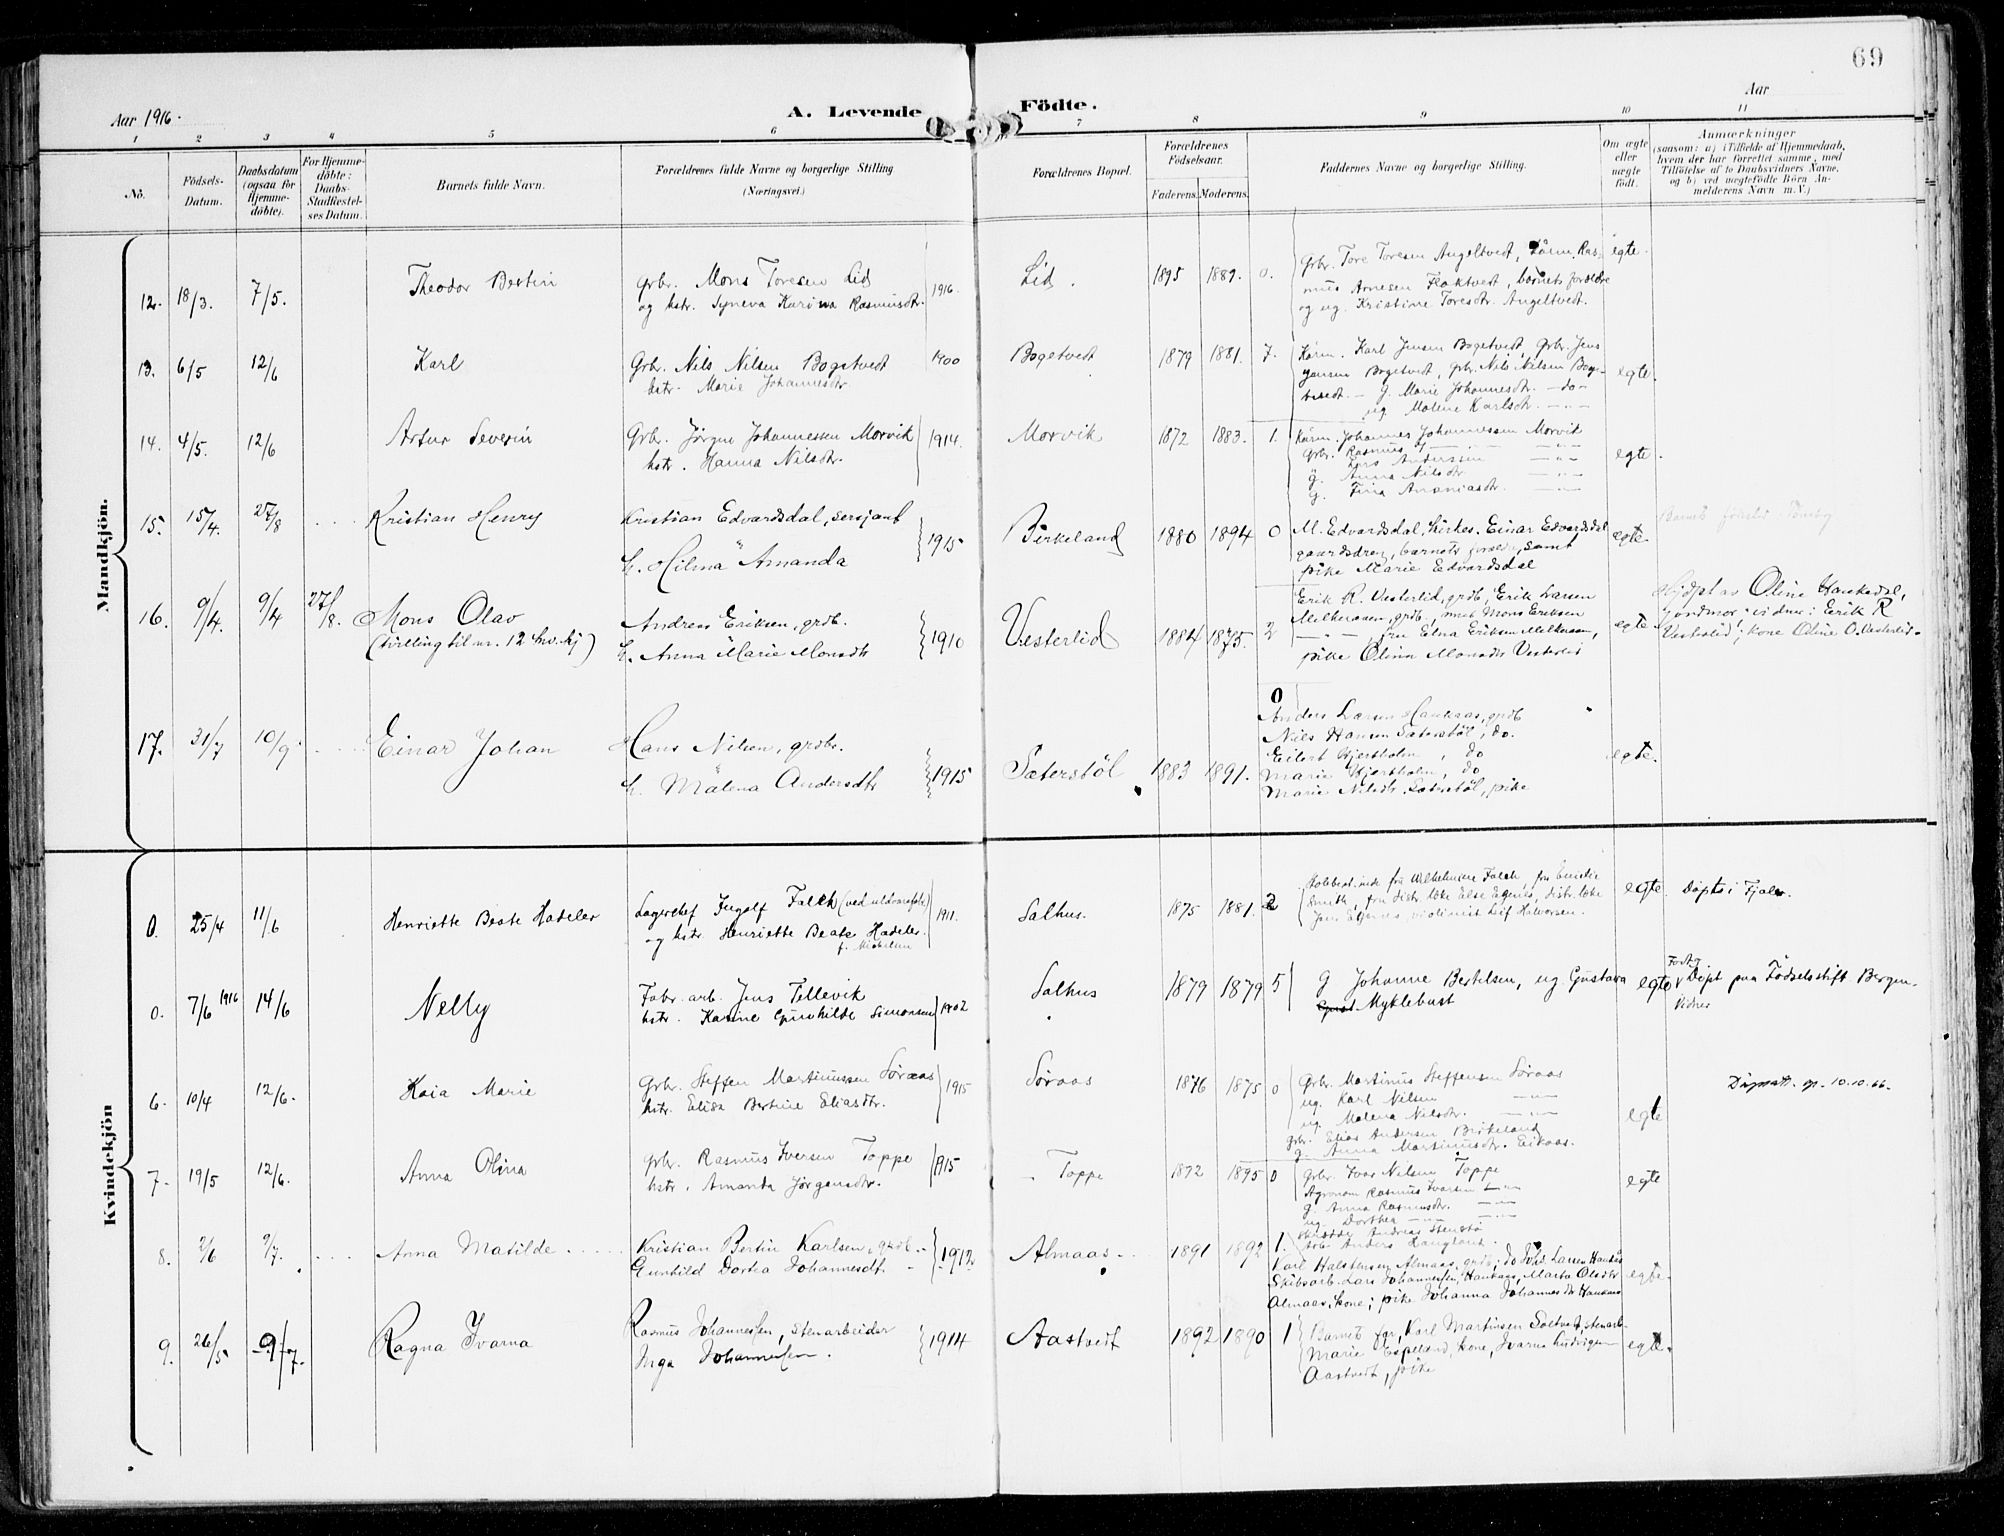 69
Aar 1916.
A. Levende Födte.
Aar
1 2 3 4 5 6 7 8 9 10 11
Nö.
Födsels-Datum.
Daabsdatum (ogsaa for Hjemme-döbte).
For Hjemme-döbte: Daabs-Stadfæstel-ses Datum.
Barnets fulde Navn.
Forældrenes fulde Navne og borgerlige Stilling (Næringsvei.)
Forældrenes Bopæl.
Forældrenes Födselsaar.
Faderens. Moderens.
Faddernes Navne og borgerlige Stilling.
Om ægte eller uægte födt.
Anmærkninger
(saasom: a) i Tilfælde af Hjemmedaab,
hvem der har forrettet samme, med
Tilföielse af to Daabsvidners Navne,
og b) ved uægtefödte Börn An-
melderens Navn m. V.)
Mandkjön.
12. 18/3. 7/5. Theodor Bertin
Grbr. Mons Toresen Lid
og hstr. Syneva Karina Rasmusdtr. 1916.
Lid. 1895 1889. 0.
Grbr. Tore Toresen Angeltvedt, Kårm. Ras-
mus Arnesen Flaktvedt, barnets forældre
og ug. Kristine Toresdtr. Angeltvedt.
egte.
13. 6/5 12/6 Karl
Grbr. Nils Nilsen Bogetvedt
hstr. Marie Johannesdtr 1900
Bogetvedt 1879 1881. 7.
Kårm. Karl Jensen Bogetvedt, Grbr. Jens
Jensen Bogetvedt, grbr. Nils Nilsen Boge-
tvedt. - g. Marie Johannesdtr. - do -
ug Malene Karlsdtr. - " -
egte.
14. 4/5. 12/6 Artur Severin
Grbr. Jörgen Johannessen Morvik
hstr. Hanna Nilsdtr. 1914.
Morvik 1872 1883. 1.
Kårm. Johannes Johannessen Morvik
Grbr. Rasmus
Lars Anderssen - " -
g. Anna Nilsdtr - " -
g. Fina Ananiasdtr. - " -
egte.
15. 15/4. 27/8 Kristian Henry
Kristian Edvardsdal, sersjant
h. Hilma Amanda 1915
Birkeland 1880 1894 0
M. Edvardsdal, kirkes. Einar Edvardsdal
gaardsdreng, barnets forældre, samt
pike Marie Edvardsdal
egte
16. 9/4. 9/4 27/8. Mons Olav
(tvilling til nr. 12 kv. kj)
Andreas Eriksen, grdb.
h. Anna Marie Monsdtr 1910
Vesterlid 1884 1875. 2
Erik R. Vesterlid, grdb, Erik Larsen
Melkeraaen, grdb, Mons Eriksen
- " - , fru Elna Eriksen Melkeraaen,
pike Olina Monsdtr Vesterlid
egte
Hjdpt av Oline Haukedal,
jordmor; vidner: Erik R
Vesterlid; kone Oline O. Vesterlid.
17. 31/7 10/9 Einar Johan
Hans Nilsen, grdbr.
h. Malena Andersdtr 1915
Sæterstöl 1883 1891. 0
Anders Larsen Haukaas, grdb
Niels Hansen Sæterstöl, do.
Eilert Hjertholm, do
Maria Hjertholm, do
Marie Nilsdtr. Sæterstöl, pike
egte.
Kvindekjön
0. 25/4 11/6 Henriette Beate Hadeler
Lagerchef Ingolf Falck (ved uldvarefabr.)
og hstr. Henriette Beate Hadeler
f. Michelsen 1911.
Salhus. 1875 1881. 2
egte Döpts i Fjaler.
0. 7/6 1916 14/6 Nelly
Fabr. arb. Jens Tellevik
hstr. Karine Gunhilde Simonsen 1902
Salhus 1879 1879 5
g Johanne Bertelsen, ug. Gustava
Myklebust
egte Döpt paa Födselsstift Bergen.
Vidner
6. 10/4 12/6. Kaia Marie
Grbr. Steffen Martinussen Söraas
hstr. Elisa Bertine Eliasdtr. 1915
Söraas 1876 1875 0
Grbr. Martinus Steffensen Söraas
ug. Karl Nilsen - " -
ug. Malena Nilsdtr. - " -
grbr. Elias Andersen Birkeland
g. Anna Martinusdtr. Eikaas.
egte
Dåpsatt. sp. 10.10.66.
7. 19/5 12/6. Anna Olina
Grbr. Rasmus Iversen Toppe
hstr. Amanda Jörgensdtr. 1915
Toppe 1892 1895 0
Grbr. Ivar Nilsen Toppe
Agronom Rasmus Ivarsen - " -
g. Anna Rasmusdtr. - " -
ug. Dorthea - " - - " -
egte
8. 2/6 9/7. Anna Matilde
Kristian Bertin Karlsen, grdb.
Gunhild Dortea Johannesdtr 1912
Almaas 1891 1892 1.
Karl Halstensen Almaas, grdb; do Joh. Larsen Haukås
Skibsarb. Lars Johannessen, Haukaas, Marta Olsdtr
Almaas, kone; pike Johanna Johannesdtr Haukaas
egte.
9. 26/5 9/7. Ragna Ivarna
Rasmus Johannessen, stenarbeider
Inga Johannessen. 1914
Aastvedt 1892 1890 1
Barnets far, Karl Martinsen Soltvedt, stenarb.
Marie Espeland, kone, Ivarna Ludvigsen
Aastvedt, pike
egte.